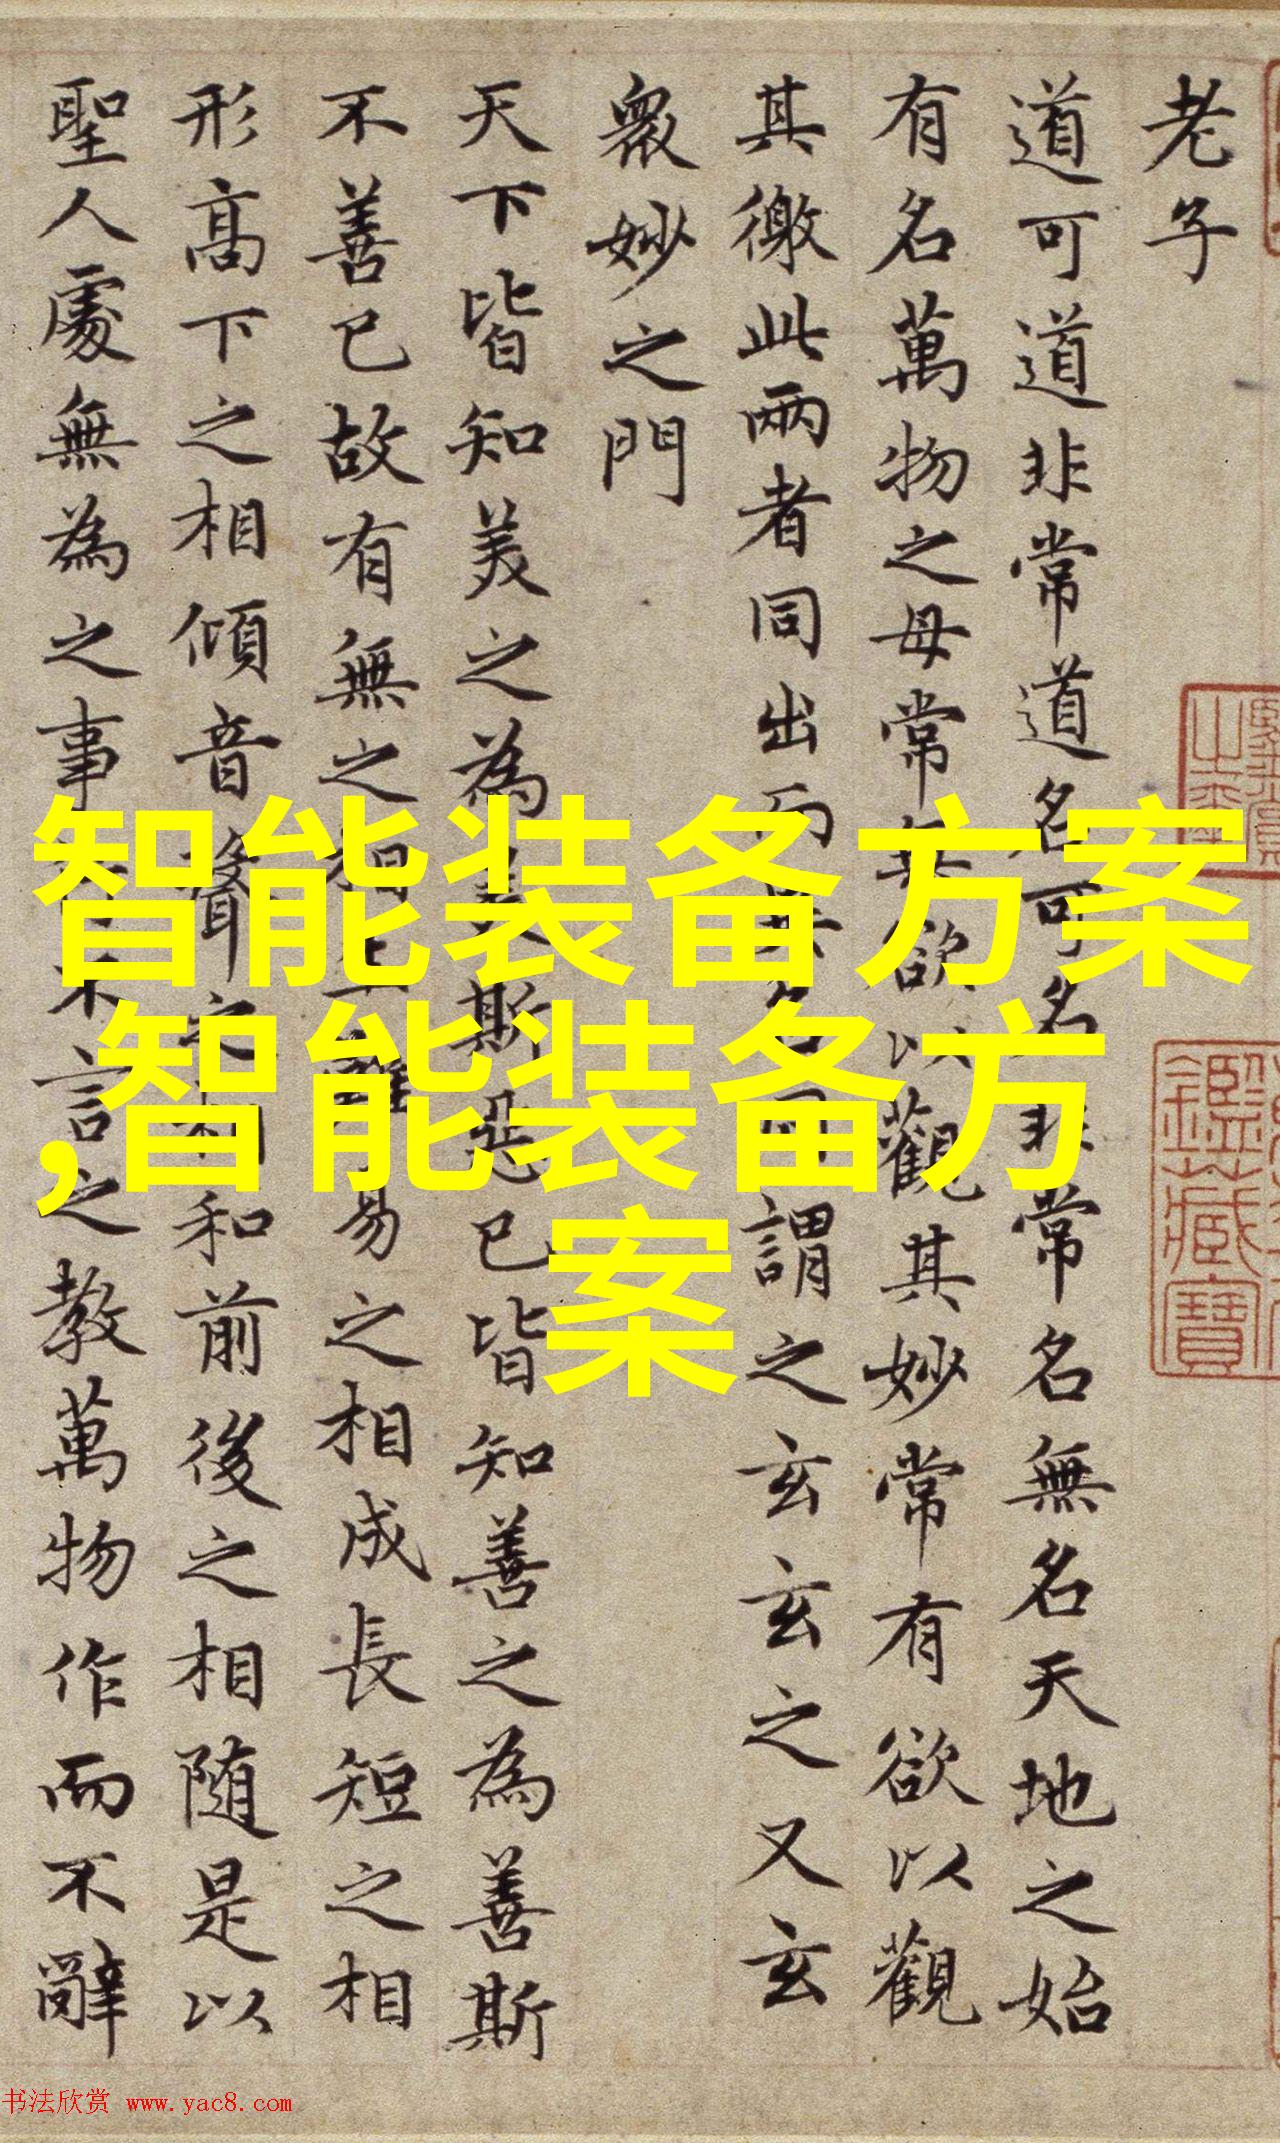 老子
道可道非常道名可名非常名無名天地之始
有名萬物之母常無欲以觀其妙常有欲以觀
其徼此兩者同出而異名同謂之玄玄之又玄
衆妙之門
天下皆知美之為美斯惡已皆知善之為善斯
不善已故有無之相生難易之相成長短之相
形高下之相傾音聲之相和前後之相随是以
聖人處無為之事行不言之教萬物作而不辭
智能装备方案
,智能装备方
案
鑑藏寶
书法欣赏 www.yac8.com